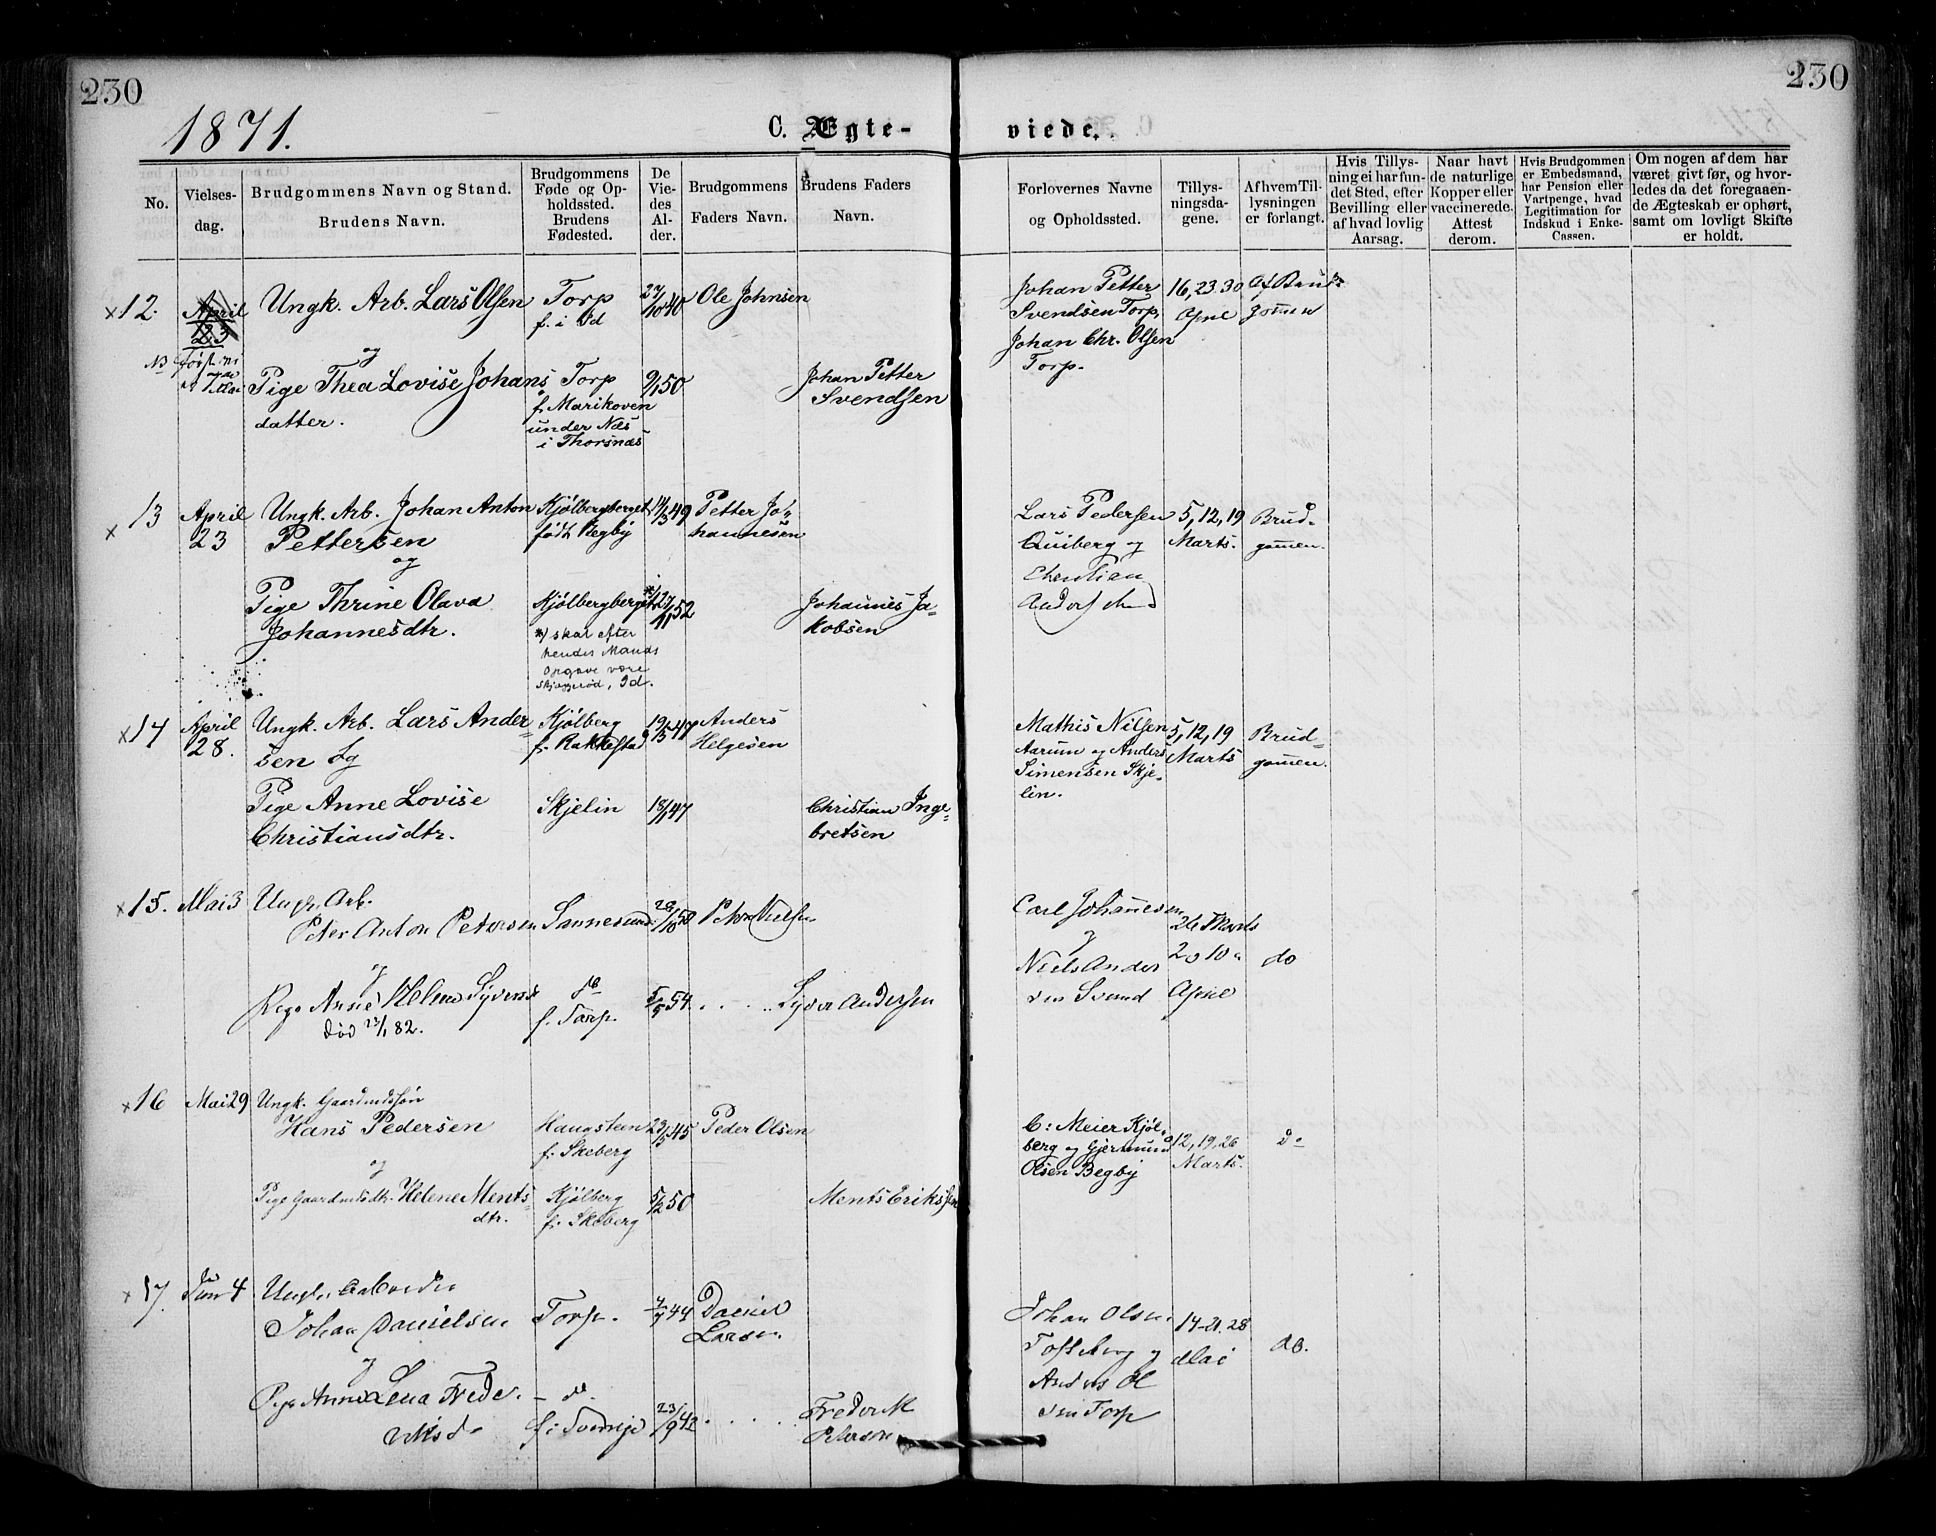 230
230
1871.
C. Ægte-
viede.
No.
Vielses-
dag.
Brudgommens Navn og Stand.
Brudens Navn.
Brudgommens
Føde og Op-
holdssted.
Brudens
Fødested.
De
Vie-
des
Al-
der.
Brudgommens
Faders Navn.
Brudens Faders
Navn.
Forlovernes Navne
og Opholdssted.
Tillys-
ningsda-
gene.
Af hvem Til-
lysningen
er forlangt.
Hvis Tillys-
ning ei har fun-
det Sted, efter
Bevilling eller
af hvad lovlig
Aarsag.
Naar havt
de naturlige
Kopper eller
vaccinerede.
Attest
derom.
Hvis Brudgommen
er Embedsmand,
har Pension eller
Vartpenge, hvad
Legitimation for
Indskud i Enke-
Cassen.
Om nogen af dem har
været gift før, og hvor-
ledes da det foregaaen-
de Ægteskab er ophørt,
samt om lovligt Skifte
er holdt.
x 12.
April
23
NB
Ungk. Arb. Lars Olsen
Torp
f. i Id
27/10 40
Ole Johnsen
Johan Petter
Svendsen Torp,
Johan Chr. Olsen
Torp.
16, 23. 30
April
og
Pige Thea Lovise Johans
datter.
Torp
f. Marikoven
under Næs
i Thorsnæs
9/1 50
Johan Petter
Svendsen
x 13
April
23
Ungk. Arb. Johan Anton
Pettersen
og
Kjølbergberget
født Hegby
14/3 49
Petter Jo-
hannesen
Lars Pedersen
Quiberg og
5, 12, 19
Marts.
Brud-
gommen.
Pige Thrine Olava
Johannesdtr.
Kjølbergberget
*) skal efter
hendes Mands
Opgave være
Skjøggerød, Id.
27/11 52
Johannes Ja-
kobsen
x 14
April
28.
Ungk. Arb. Lars Ander-
sen og
Kjølberg
f. Rakkestad
19/5 47
Anders
Helgesen
Mathis Nilsen
Aarum og Anders
Simensen Skje-
lin.
5, 12, 19
Marts
Brud-
gommen.
Pige Anne Lovise
Christiansdtr.
Skjelin
18/1 47
Christian Inge-
bretsen
x 15.
Mai 3
Ungk. Arb.
Peter Anton Petersen
Sannesund
28/10 50
Peter Nielsen
Carl Johannesen
og
Niels Ander
sen Svend
26 Marts
2 og 10
April
do
og
Pige Anne Helene Syvers
død 23/1 82.
do
f. Torp.
5/5 54
Syver Andersen
x 16
Mai 29
Ungk. Gaardmdssøn
Hans Pedersen
og
Haugsteen
f. Skeberg
23/5 45
Peder Olsen
C: Meier Kjøl-
berg og Gjermund
Olsen Begby
12, 19, 26
Marts.
do
Pige Gaardmdsdtr. Helene Ments-
dtr.
Kjølberg
f. Skeberg
5/2 50
Ments Eriksen
x 17.
Juni 4
Ungk. Arbeider
Johan Danielsen
og
Torp.
7/7 44
Daniel
Larsen
Johan Olsen
Tofteberg og
Anders Ol
sen Torp
14-21. 28
Mai
do.
Pige Anne Lena Frede-
riksd.
- do.
f. i Sverrige
23/9 42
Frederik
Peterson